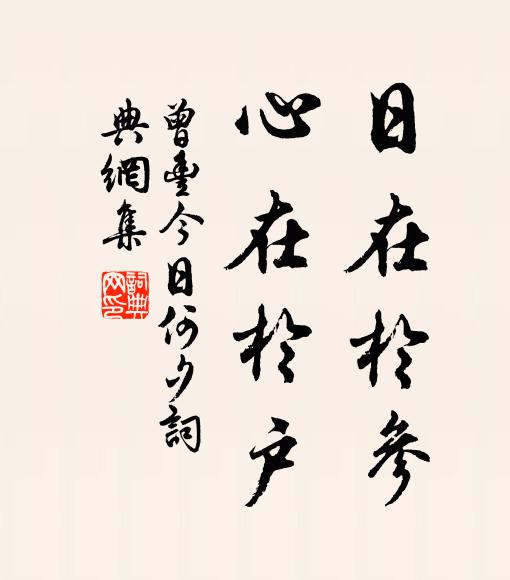 日在於參
心在於户
曾豐今日何夕詞
典網集
詞典
网印